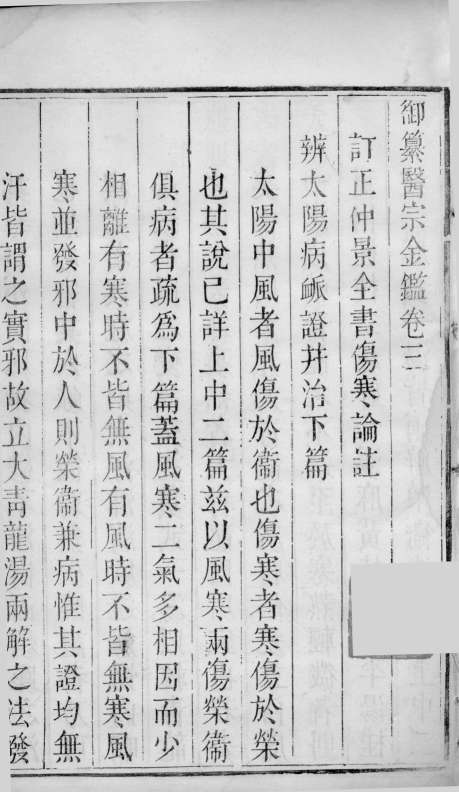 御纂醫宗金鑑卷三
訂正仲景全書傷寒論註
辨太陽病脈證并治下篇
太陽中風者風傷於衞也傷寒者寒傷於榮
也其說已詳上中二篇茲以風寒兩傷榮衞
俱病者疏爲下篇蓋風寒二氣多相因而少
相離有寒時不皆無風有風時不皆無寒風
寒並發邪中於人則榮衞兼病惟其證均無
汗皆謂之實邪故立大青龍湯兩解之法發